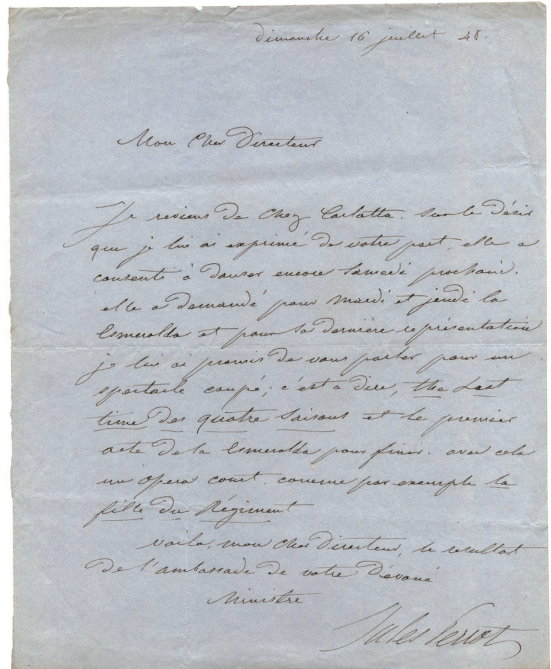 dimanche 16 juillet 48.
Mon Cher Directeur
Je reviens de chez Carlotta. sur le désir
que je lui ai exprimé de votre part, elle a
consenti à danser encore Samedi prochain.
elle a demandé pour mardi et jeudi la
Esmeralda et pour sa dernière représentation
je lui ai promis de vous parler pour un
spectacle coupé; c'est a dire, the Last
time des quatre Saisons et le premier
acte de la Esmeralda pour finir. avec cela
un opera court comme par exemple la
fille du Régiment
voila, mon cher Directeur, le resultat
de l'ambassade de votre Dévoué
Ministre
Jules Perrot